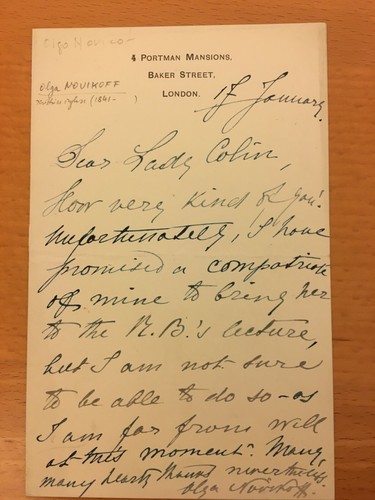 Olga Novico-
4 PORTMAN MANSIONS,
BAKER STREET,
LONDON.
Olga NOVIKOFF
(1841-
17 January.
Dear Lady Colin,
How very kind of you!
Unfortunately, I have
promised a compatriote
of mine to bring her
to the R.B.'s lecture,
but I am not sure
to be able to do so-as
I am far from well
at this moment. Many,
many hearty thanks nevertheless.
Olga Novikoff.